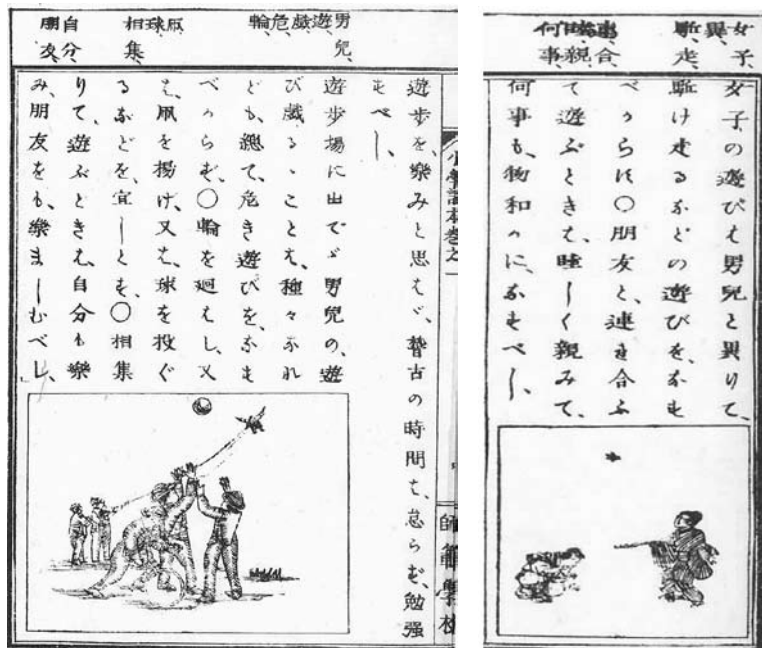 男兒、遊戯、危、輪
凧、球、相集
自分、朋友、
遊歩を、樂みと思はゞ、稽古の時間は、怠らず、勉强
すべし、
遊歩塲に出でゞ男兒の、遊
び戯るゝことは、種々なれ
ども、總て、危き遊びを、なす
べからず、〇輪を廻はし、又
は、凧を揚げ、又は、球を投ぐ
るなどを、宜しとす、〇相集
りて、遊ぶときは、自分も樂
み、朋友をも、樂ましむべし、
小學讀本卷之
師範學校
女子、異、
駈走、
睦親、
何事
女子の遊びは男兒と異りて、
駈け走るなどの遊びを、なす
べからず〇朋友と、連れ合ふ
て遊ぶときは、睦しく親みて、
何事も、物和かに、なすべし、